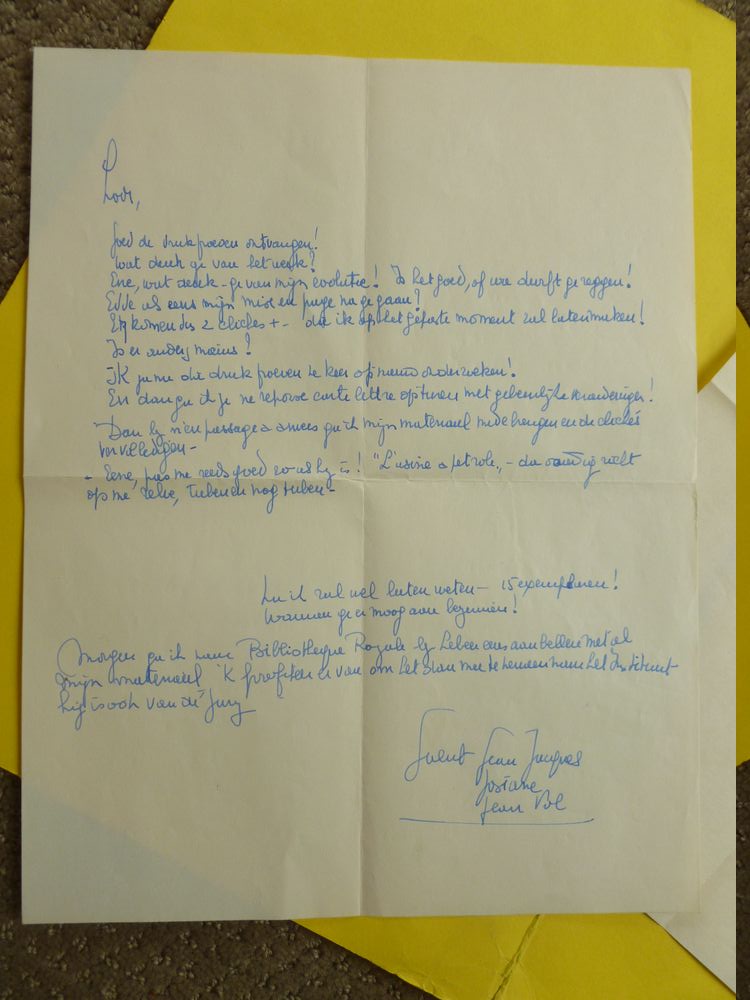 Lode,
Goed de drukproeven ontvangen!
Wat denk ge van het werk?
Ene, wat denk-ge van mijn evolutie! Is het goed, of wa durft ge zeggen!
Edde al eens mijn mise en page nagegaan?
Er komen dus 2 clichés + - die ik op het gepaste moment zal laten maken!
Is er anders moeins?
IK ga me die druk proeven 1e keer opnieuw onderzoeken!
En dan ga ik je ne reponse carte lettre opsturen met gebeurlijke veranderingen!
Dan bij n'en passage a anvers ga ik mijn materiaal medebrengen en de clichés
vervolledigen -
- Eene, pas me reeds goed zoals hij is! "L'usine a petrole„ - da
op me zelve, tuben en nog tuben -
zal wel laten weten - 15 exemplaren!
Wanneer ge er moog aan beginnen!
Morgen ga ik naar Bibliotheque Royale bij Leben eens aanbellen met al
mijn materiaal 'K profiteer er van om het plan mee te nemen naar het Instituut
hij is ook van de Jury
Jean Jacques
Josiane
Jean Pol